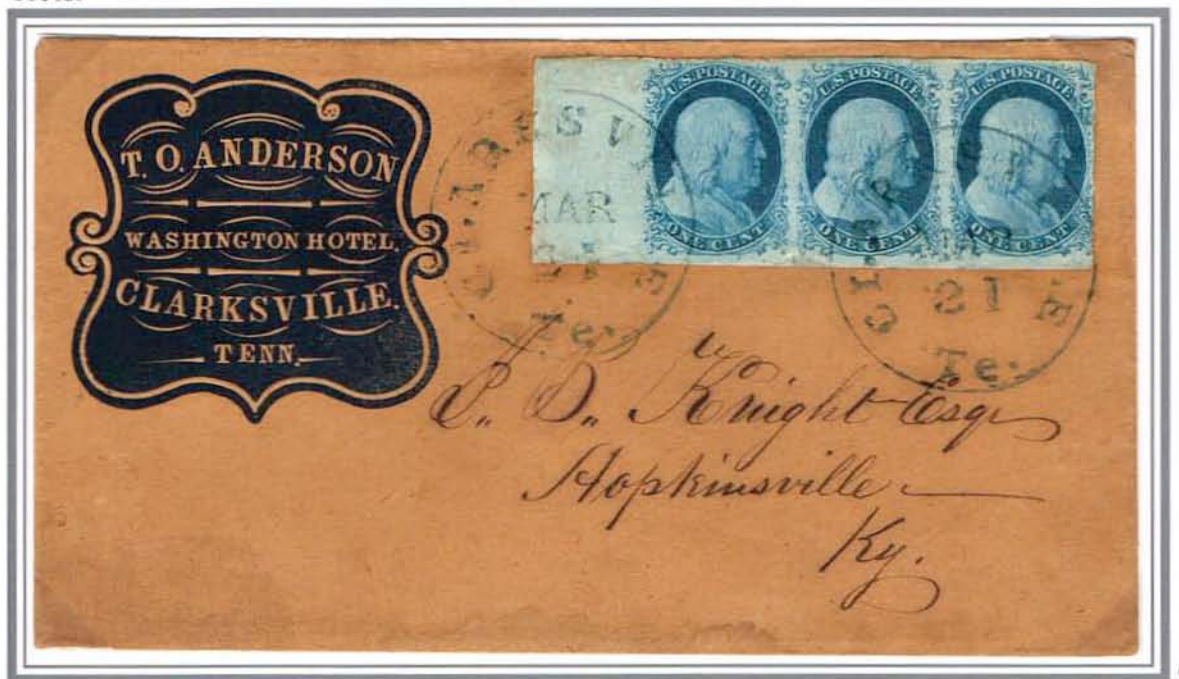 T. O. ANDERSON
WASHINGTON HOTEL,
CLARKSVILLE.
TENN.
U.S. POSTAGE
ONE CENT
U.S. POSTAGE
ONE CENT
U.S. POSTAGE
ONE CENT
MAR
Te.
21
Te.
D. Knight Esqr
Hopkinsville
Ky.